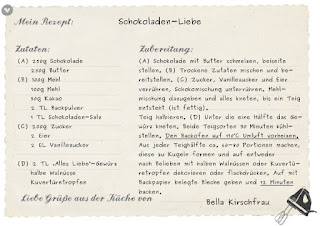 Mein Rezept:
Schokoladen-Liebe
Zutaten:
(A) 250g Schokolade
250g Butter
(B) 100g Mehl
100g Mehl
50g Kakao
2 TL Backpulver
1 TL Schokoladen-Salz
(C) 200g Zucker
2 Eier
2 EL Vanillezucker
(D) 2 TL „Alles Liebe"-Gewürz
halbe Walnüsse
Kuvertüretropfen
Zubereitung:
(A) Schokolade mit Butter schmelzen, beiseite
stellen. (B) Trockene Zutaten mischen und be-
reitstellen. (C) Zucker, Vanillezucker und Eier
verrühren, Schokomischung unterrühren, Mehl-
mischung dazugeben und alles kneten, bis ein Teig
entsteht (ist fettig).
Teig halbieren, (D) Unter die eine Hälfte das Ge-
würz kneten. Beide Teigsorten 30 Minuten kühl-
stellen. Den Backofen auf °C Umluft vorheizen.
Aus jeder Teighälfte ca. Portionen machen,
diese zu Kugeln formen und auf entweder
nach Belieben mit halben Walnüssen oder Kuvertü-
retropfen dekorieren oder flachdrücken. Auf mit
Backpapier belegte Bleche geben und 12 Minuten
backen.
Liebe Grüße aus der Küche von
Bella Kirschfrau